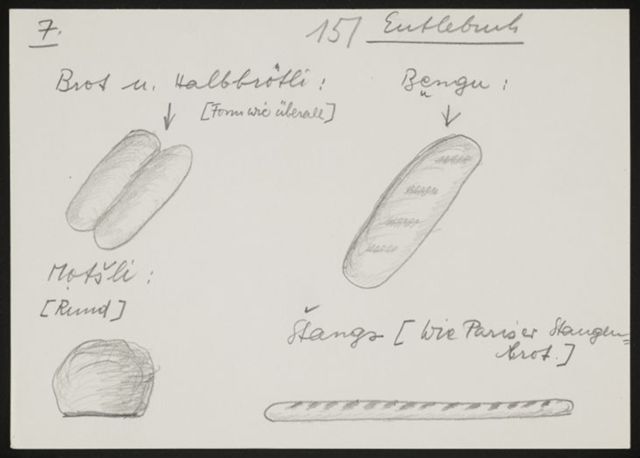 7.
15/ Entlebuch
Brot u. Halbbrötli :
[Form wie überall]
Bengu :
Motšli :
[Rund]
Štangə [Wie Pariser Stangen=
brot.]